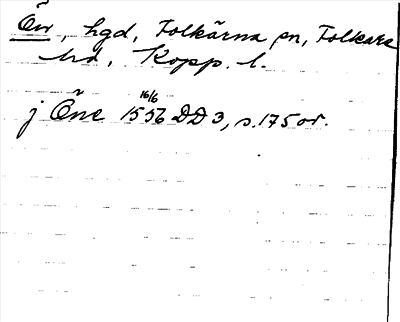 Ön, hgd, Folkärna sn, Folkare
hd, Kopp. l.
16/6
j Öne 1556 DD 3, s. 175 or.